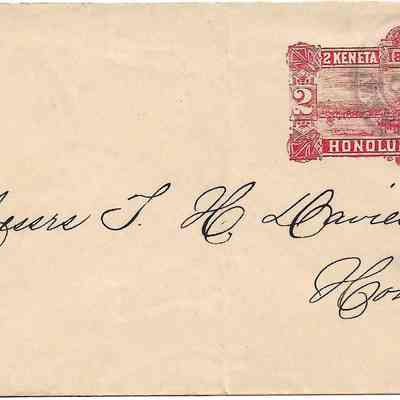 2 KENETA
2
HONOLU
essrs T. H. Davies
Hon